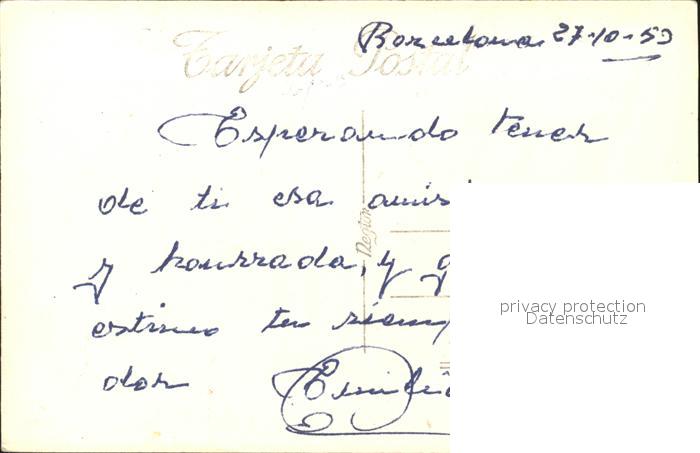 Barcelona 27-10-53
Tarjeta Postal
Esperando tener
de ti esa amis
y hourrada, y g
estimo tu siemp
dor Emilio
privacy protection
Datenschutz